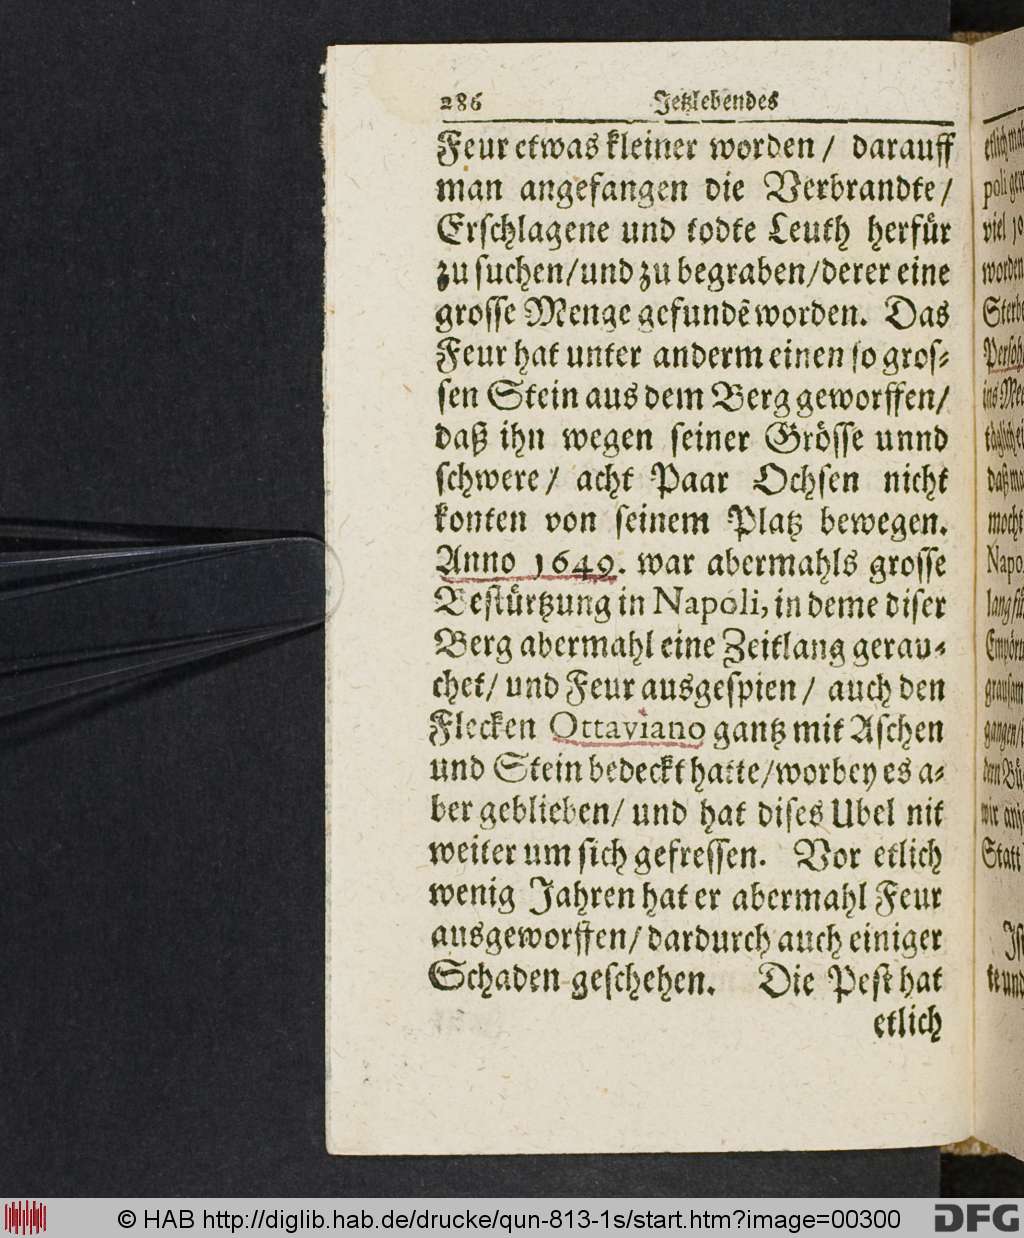 286 Jetzlebendes
Feur etwas kleiner worden / darauff
man angefangen die Verbrandte /
Erschlagene und todte Leuth herfür
zu suchen / und zu begraben / derer eine
grosse Menge gefundē worden. Das
Feur hat unter anderm einen so gros-
sen Stein aus dem Berg geworffen /
daß ihn wegen seiner Grösse unnd
schwere / acht Paar Ochsen nicht
konten von seinem Platz bewegen.
Anno 1649. war abermahls grosse
Bestürtzung in Napoli, in deme diser
Berg abermahl eine Zeitlang gerau-
chet / und Feur ausgespien / auch den
Flecken Ottaviano gantz mit Aschen
und Stein bedeckt hatte / worbey es a-
ber geblieben / und hat dises Ubel nit
weiter um sich gefressen. Vor etlich
wenig Jahren hat er abermahl Feur
ausgeworffen / dardurch auch einiger
Schaden geschehen. Die Pest hat
etlich
viel
worden
Napo
Statt
© HAB http://diglib.hab.de/drucke/qun-813-1s/start.htm?image=00300
DFG